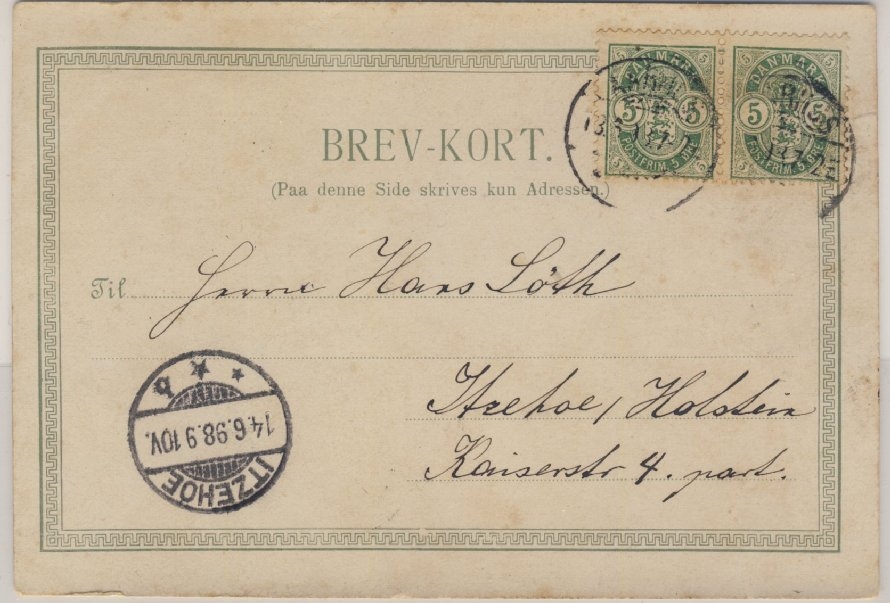 DANMARK
5 5
POSTFRIM. 5 ØRE
DANMARK
5 5
POSTFRIM. 5 ØRE
BREV-KORT.
(Paa denne Side skrives kun Adressen.)
Til Herrn Hans Löth
Itzehoe / Holstein
Kaiserstr 4. part.
b
14.6.98.9 10V.
ITZEHOE